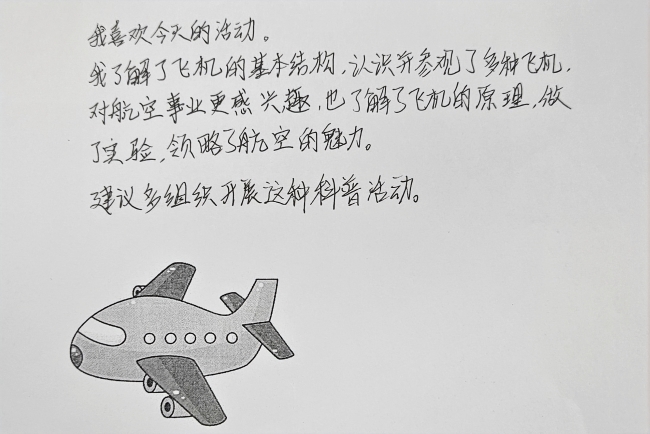 我喜欢今天的活动。
我了解了飞机的基本结构，认识并参观了多种飞机，
对航空事业更感兴趣，也了解了飞机的原理，做
了实验，领略了航空的魅力。
建议多组织开展这种科普活动。